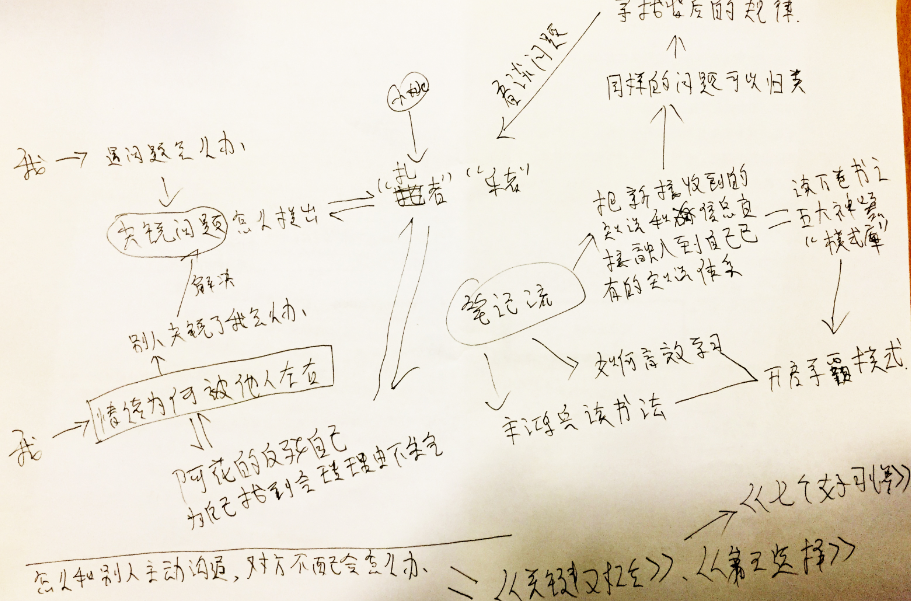 的规律
同样的问题可以归类
查谈问题
我 → 遇问题怎么办、
扎
"者" "乐者"
关键问题 怎么提出
把新接收到的
知识和信息直
接融入到自己已
有的知识体系
读万卷书之
五大神器
"模式库"
解决
笔记流
别人关键了我怎么办、
如何高效学习
开启学霸模式
情绪为何被他人左右
我 →
读书法
阿花的反驳自己
为自己找到合理理由不
《七个好习惯》
怎么和别人主动沟通,对方不配合怎么办、
《关键对话》、《第三选择》